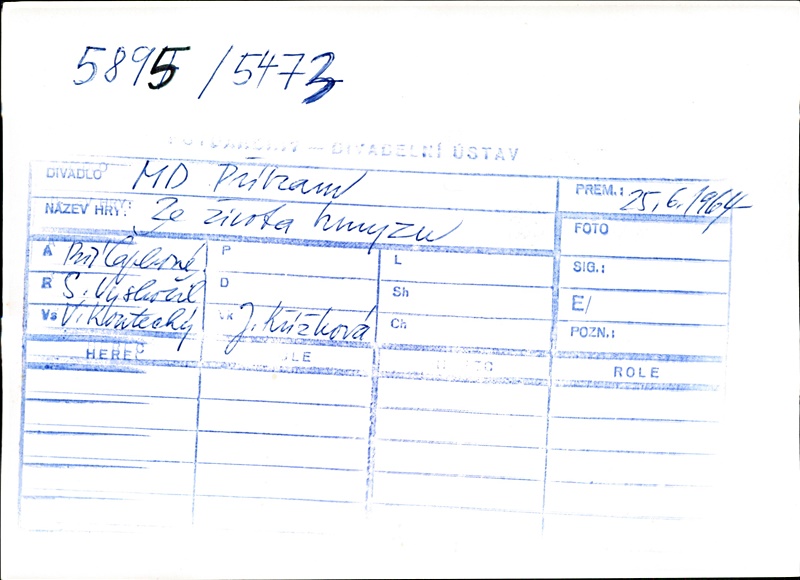 5895 / 5473
FOTOARCHIV — DIVADELNÍ ÚSTAV
DIVADLO MD Příbram PREM.: 25. 6. 1964
NÁZEV HRY: Ze života hmyzu FOTO
A P L SIG.:
R S. Vyskočil D Sh E/
Vs V. Kloutecký Vk J. Křížková Ch POZN.:
HEREC ROLE HEREC ROLE